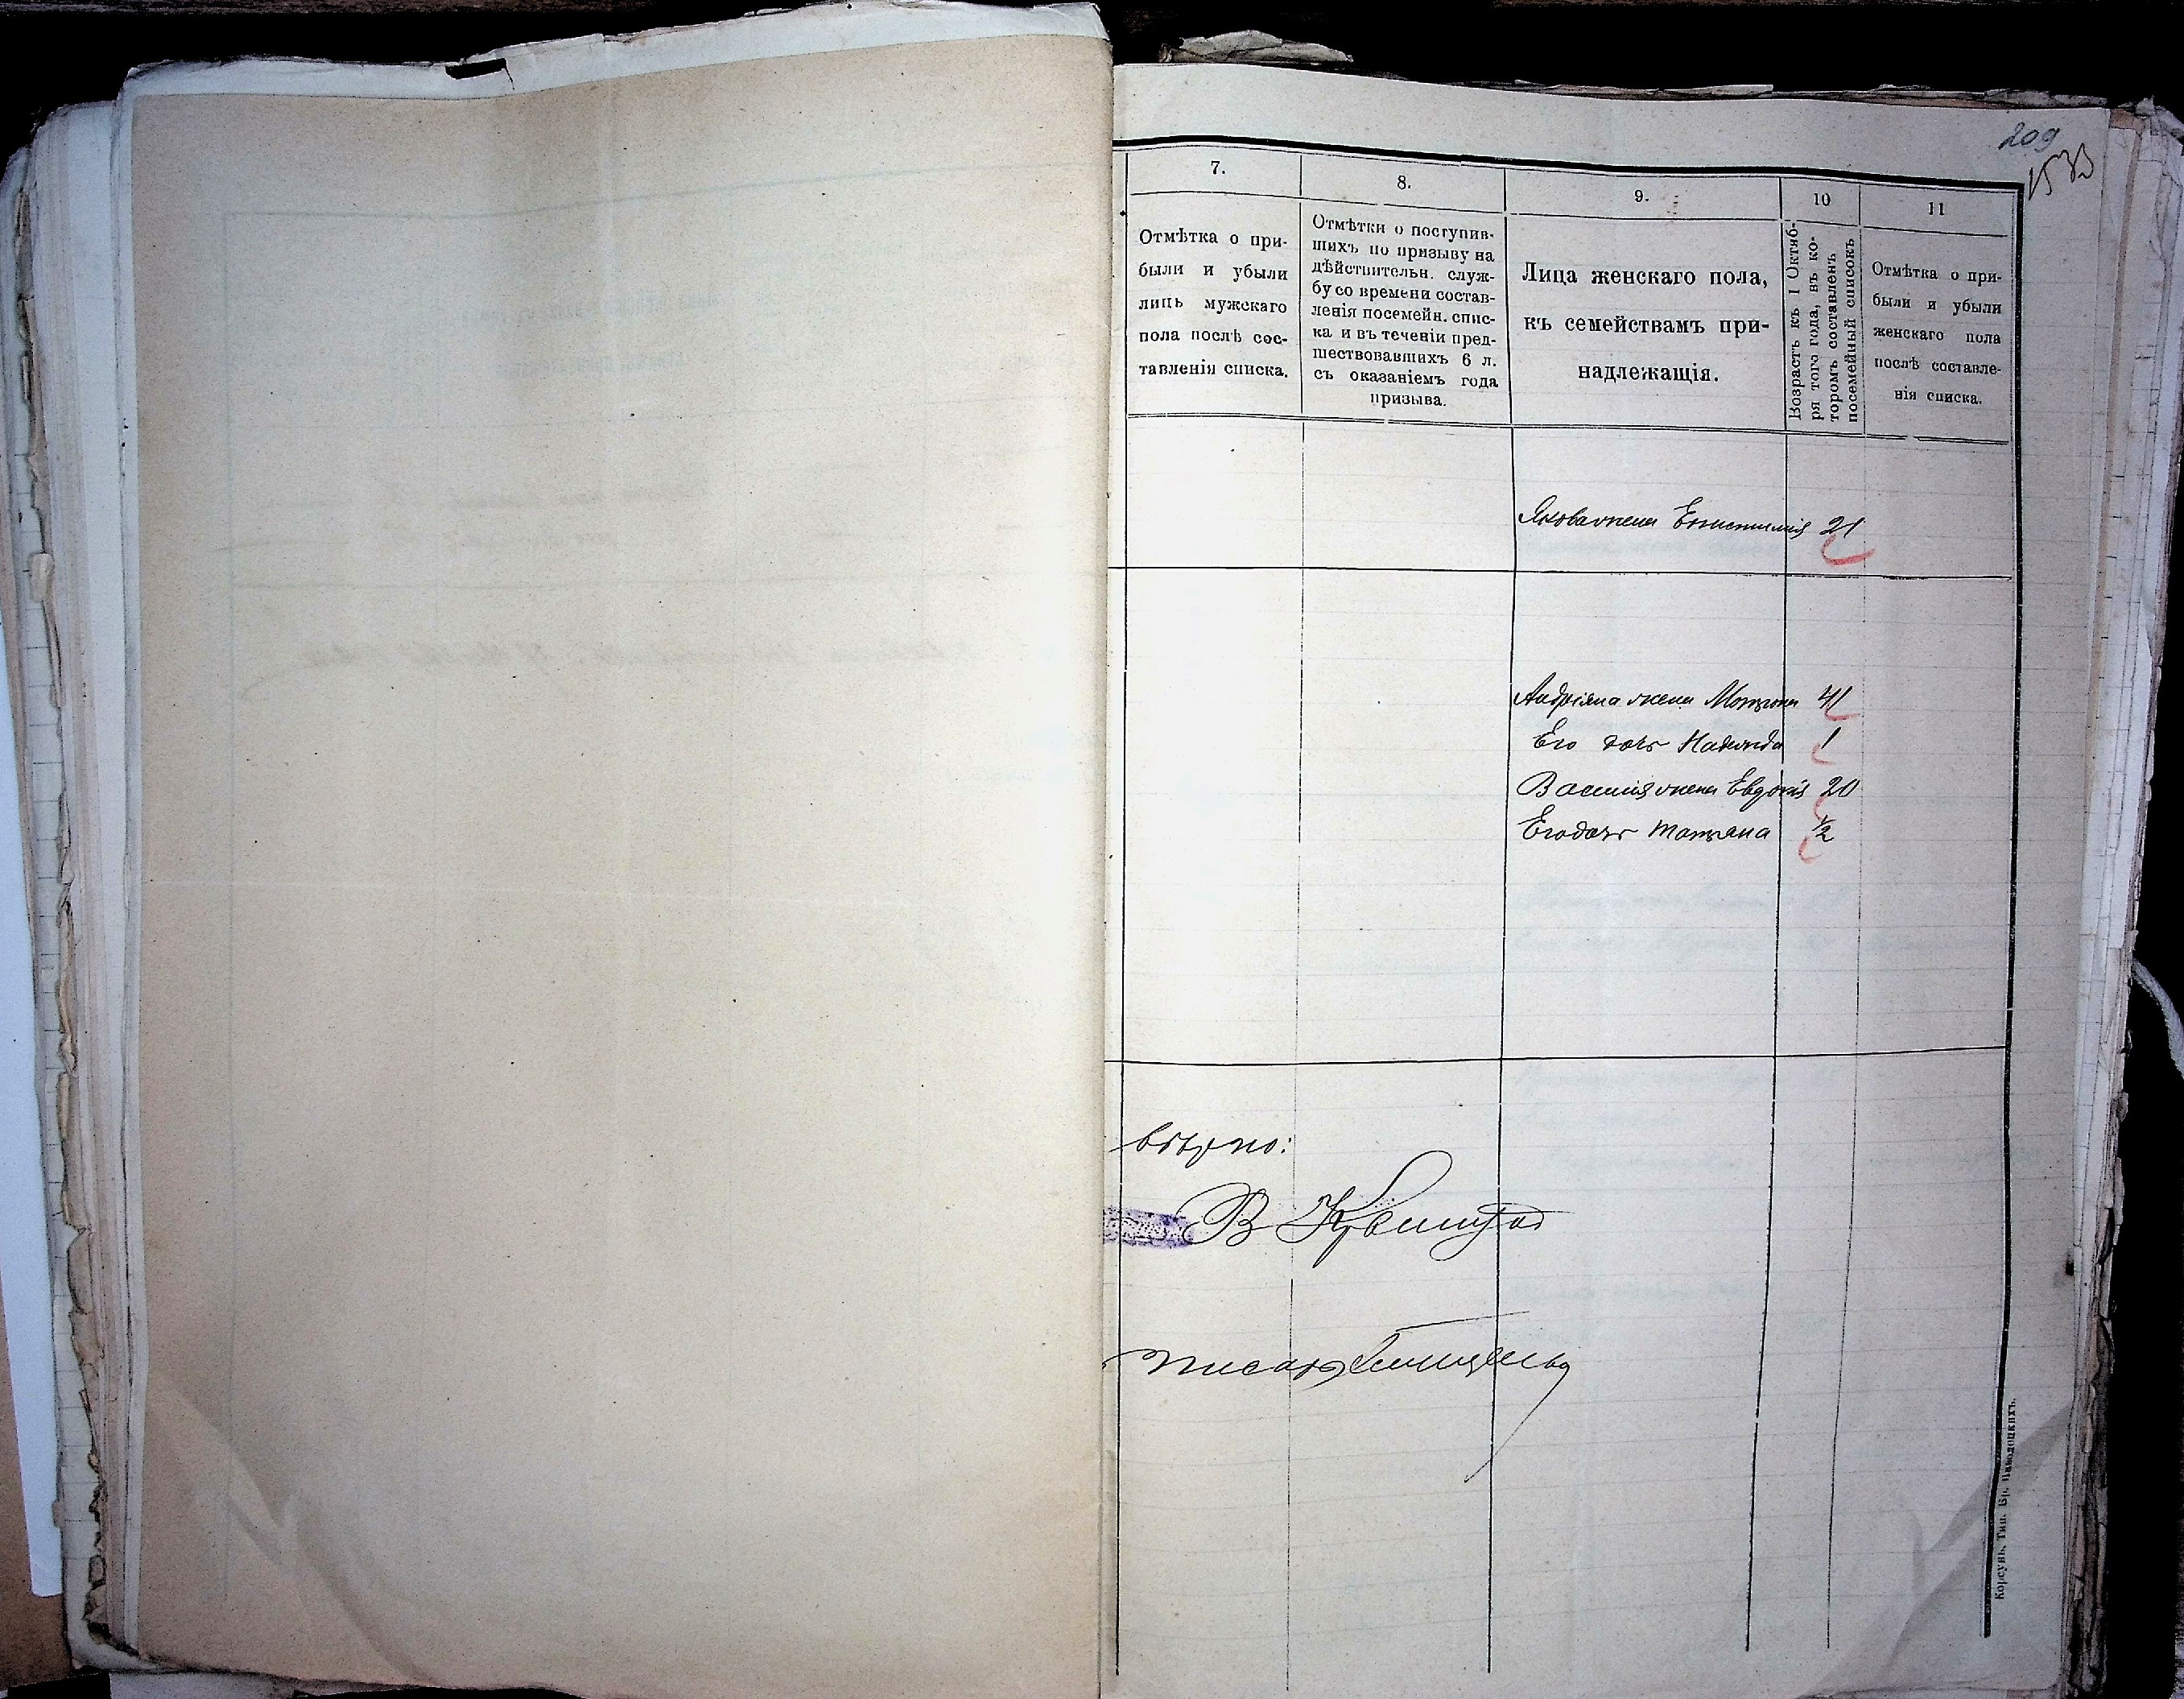 209
1533
7.
8.
9.
10
11
Отмѣтка о при-
были и убыли
лицъ мужскаго
пола послѣ сос-
тавленія списка.
Отмѣтки о поступив-
шихъ по призыву на
дѣйствительн. служ-
бу со времени состав-
ленія посемейн. спис-
ка и въ теченіи пред-
шествовавшихъ 6 л.
съ оказаніемъ года
призыва.
Лица женскаго пола,
къ семействамъ при-
надлежащія.
Возрастъ къ 1 Октяб-
ря того года, въ ко-
торомъ составленъ
посемейный списокъ
Отмѣтка о при-
были и убыли
женскаго пола
послѣ составле-
нія списка.
Якова жена 21
Андріяна жена Мотрона 41
Его дочь Надежда 1
Василія жена Евдокія 20
Его дочь Татьяна ½
вѣрно:
В
Писарь
Корсунь, Тип. Бр.